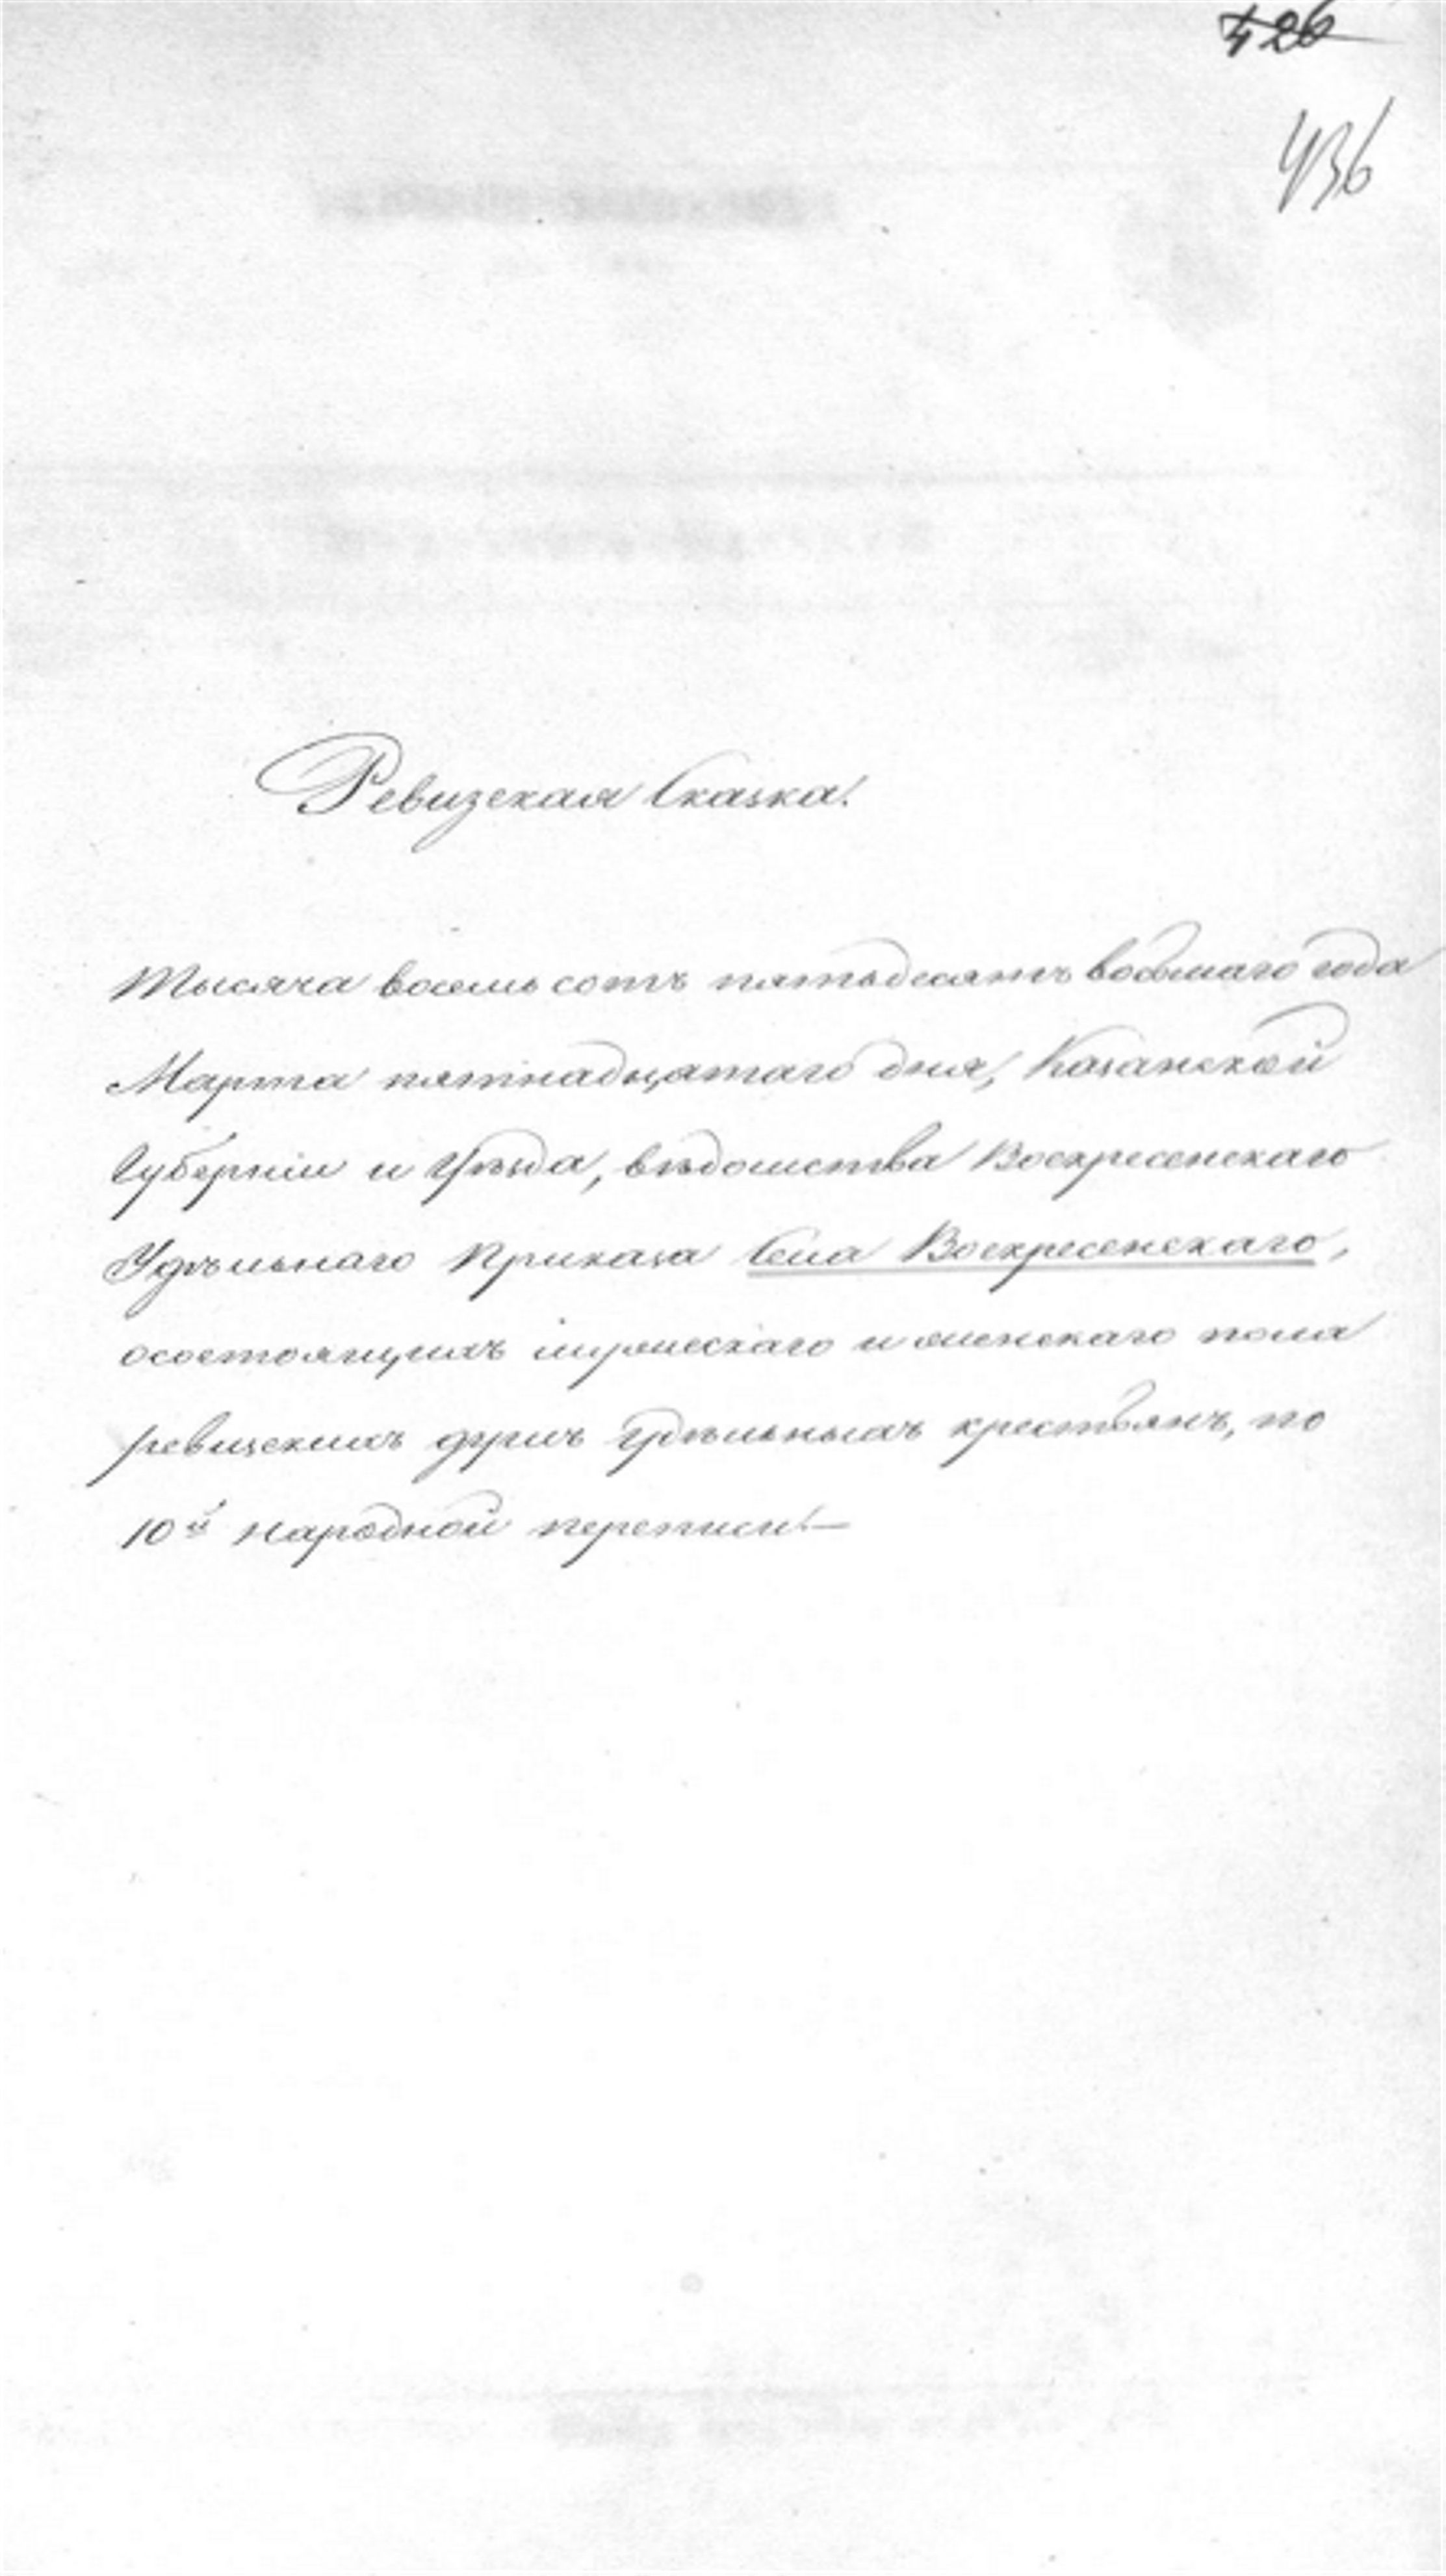 426
436
Ревизская Сказка!
Тысяча восемь сотъ пятьдесятъ восьмаго года
Марта пятнадцатаго дня, Казанской
Губерніи и Уѣзда, вѣдомства Воскресенскаго
Удѣльнаго Приказа Села Воскресенскаго,
осостоящихъ мужескаго и женскаго пола
ревизскихъ душъ удѣльныхъ крестьянъ, по
10й народной переписи!—